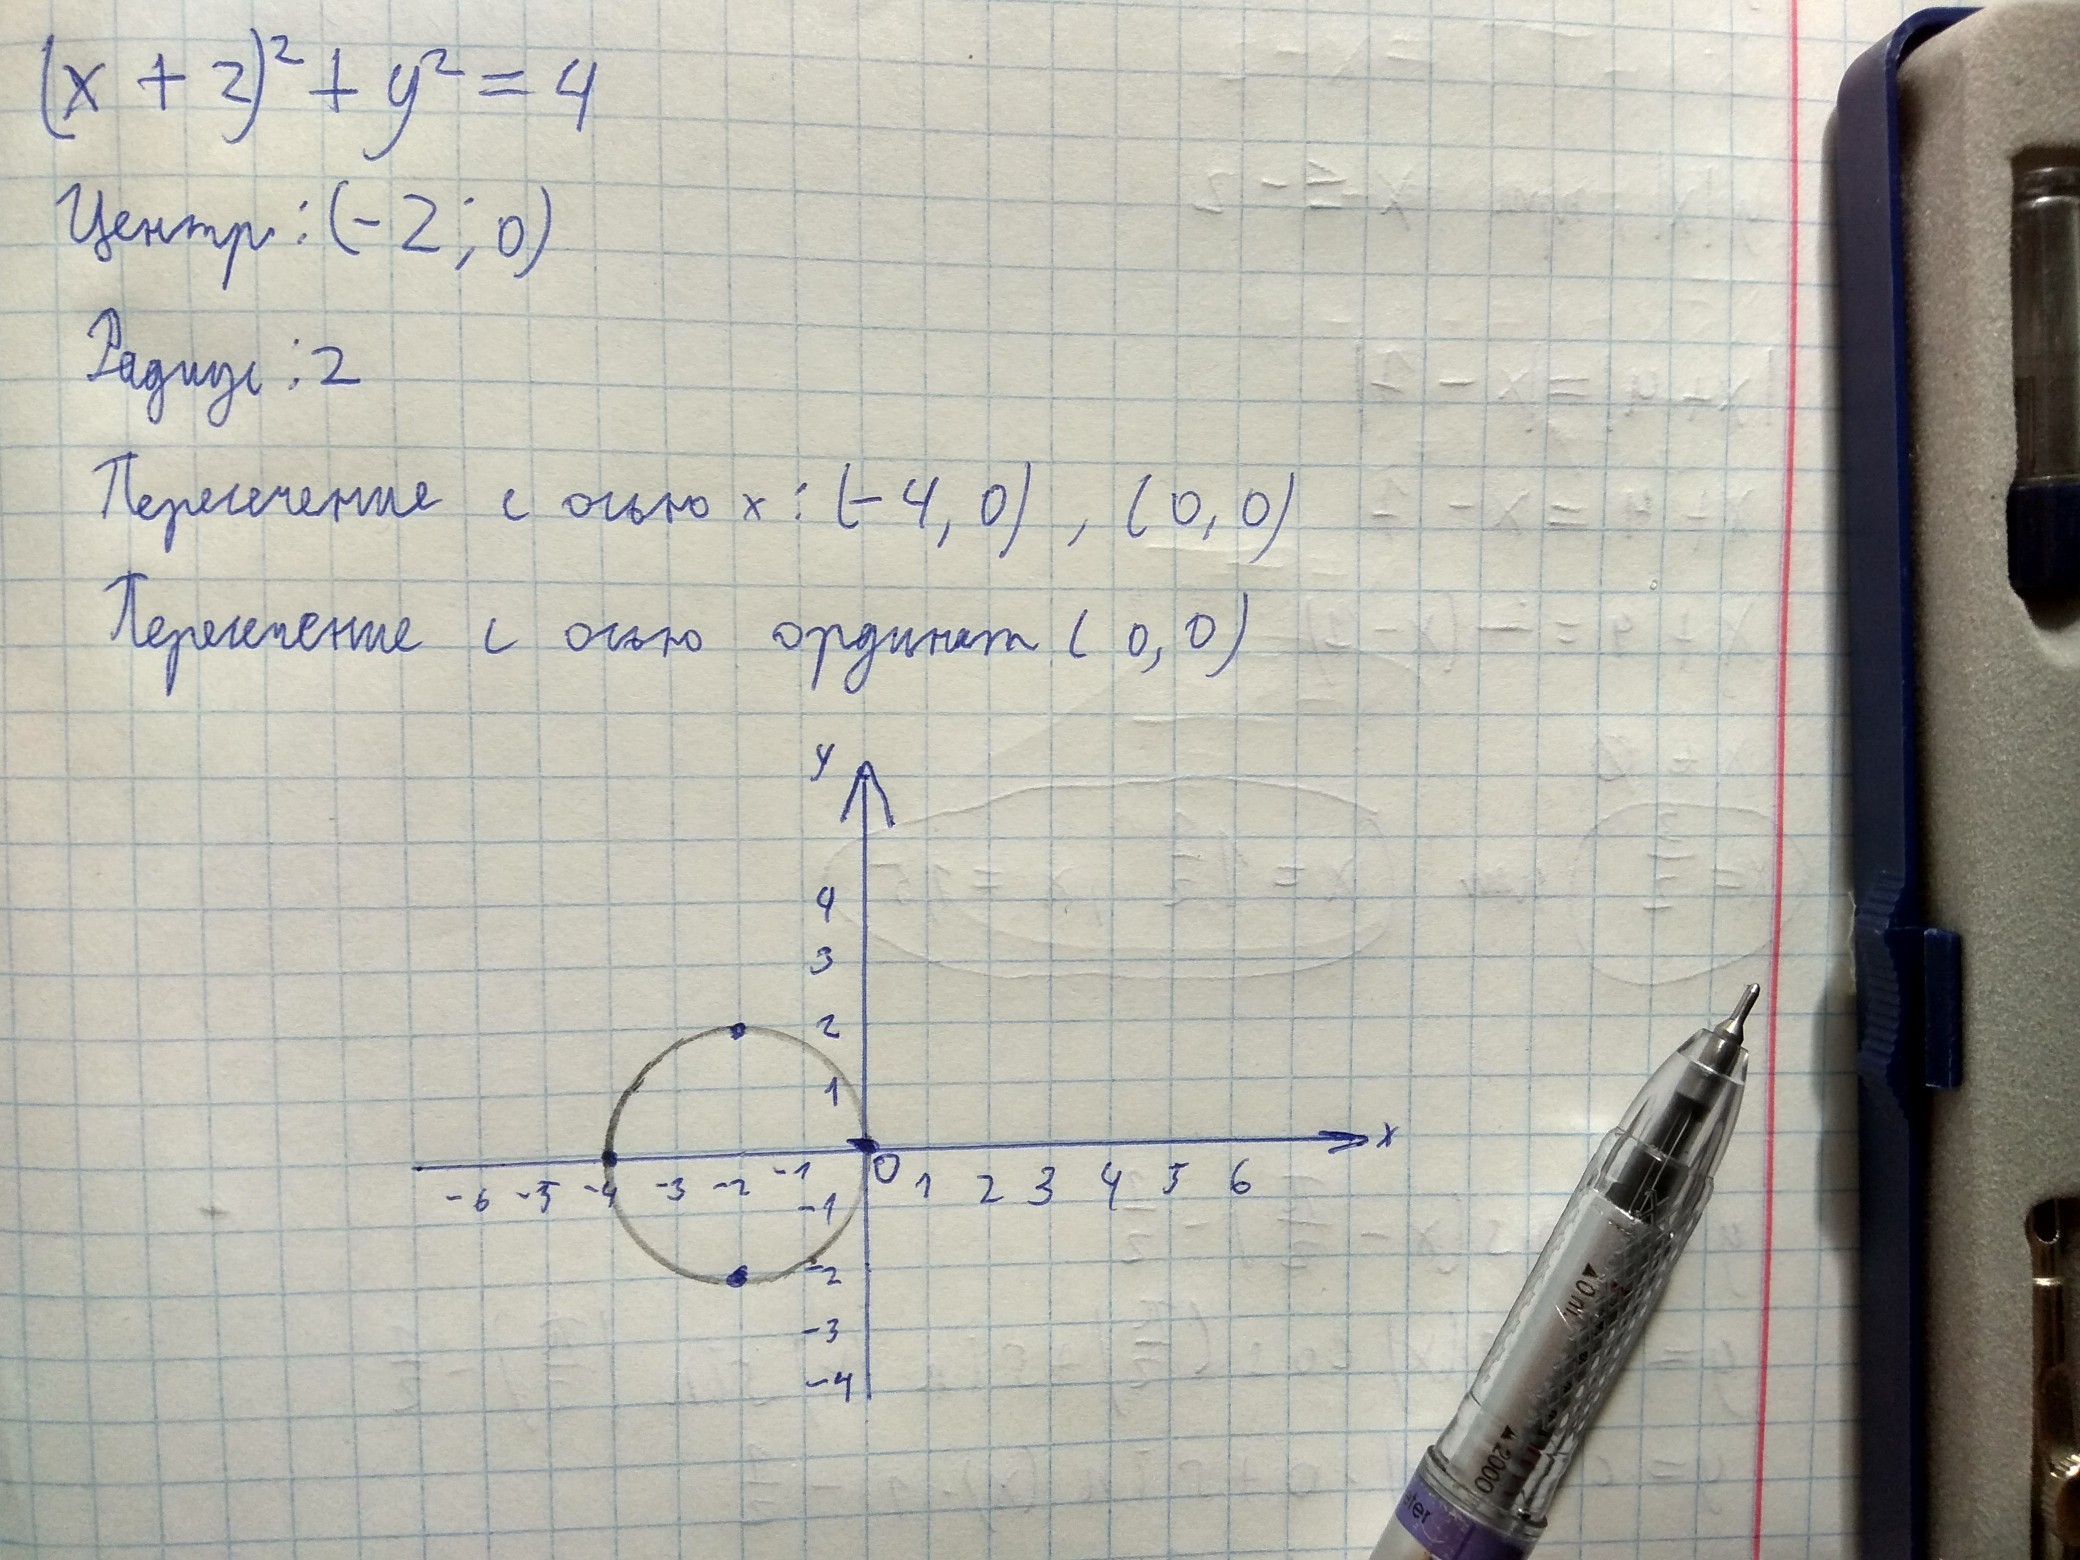 (x + 2)² + y² = 4
Центр: (-2; 0)
Радиус: 2
Пересечение с осью x: (-4, 0), (0, 0)
Пересечение с осью ординат (0, 0)
y
4
3
2
1
x
-6 -5 -4 -3 -2 -1 0 1 2 3 4 5 6
-1
-2
-3
-4
0ml
2000